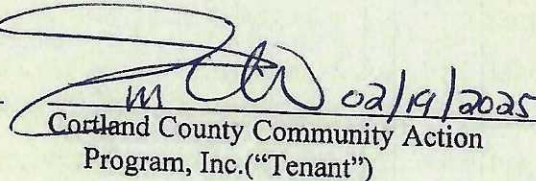 02/19/2025
Cortland County Community Action
Program, Inc.("Tenant")